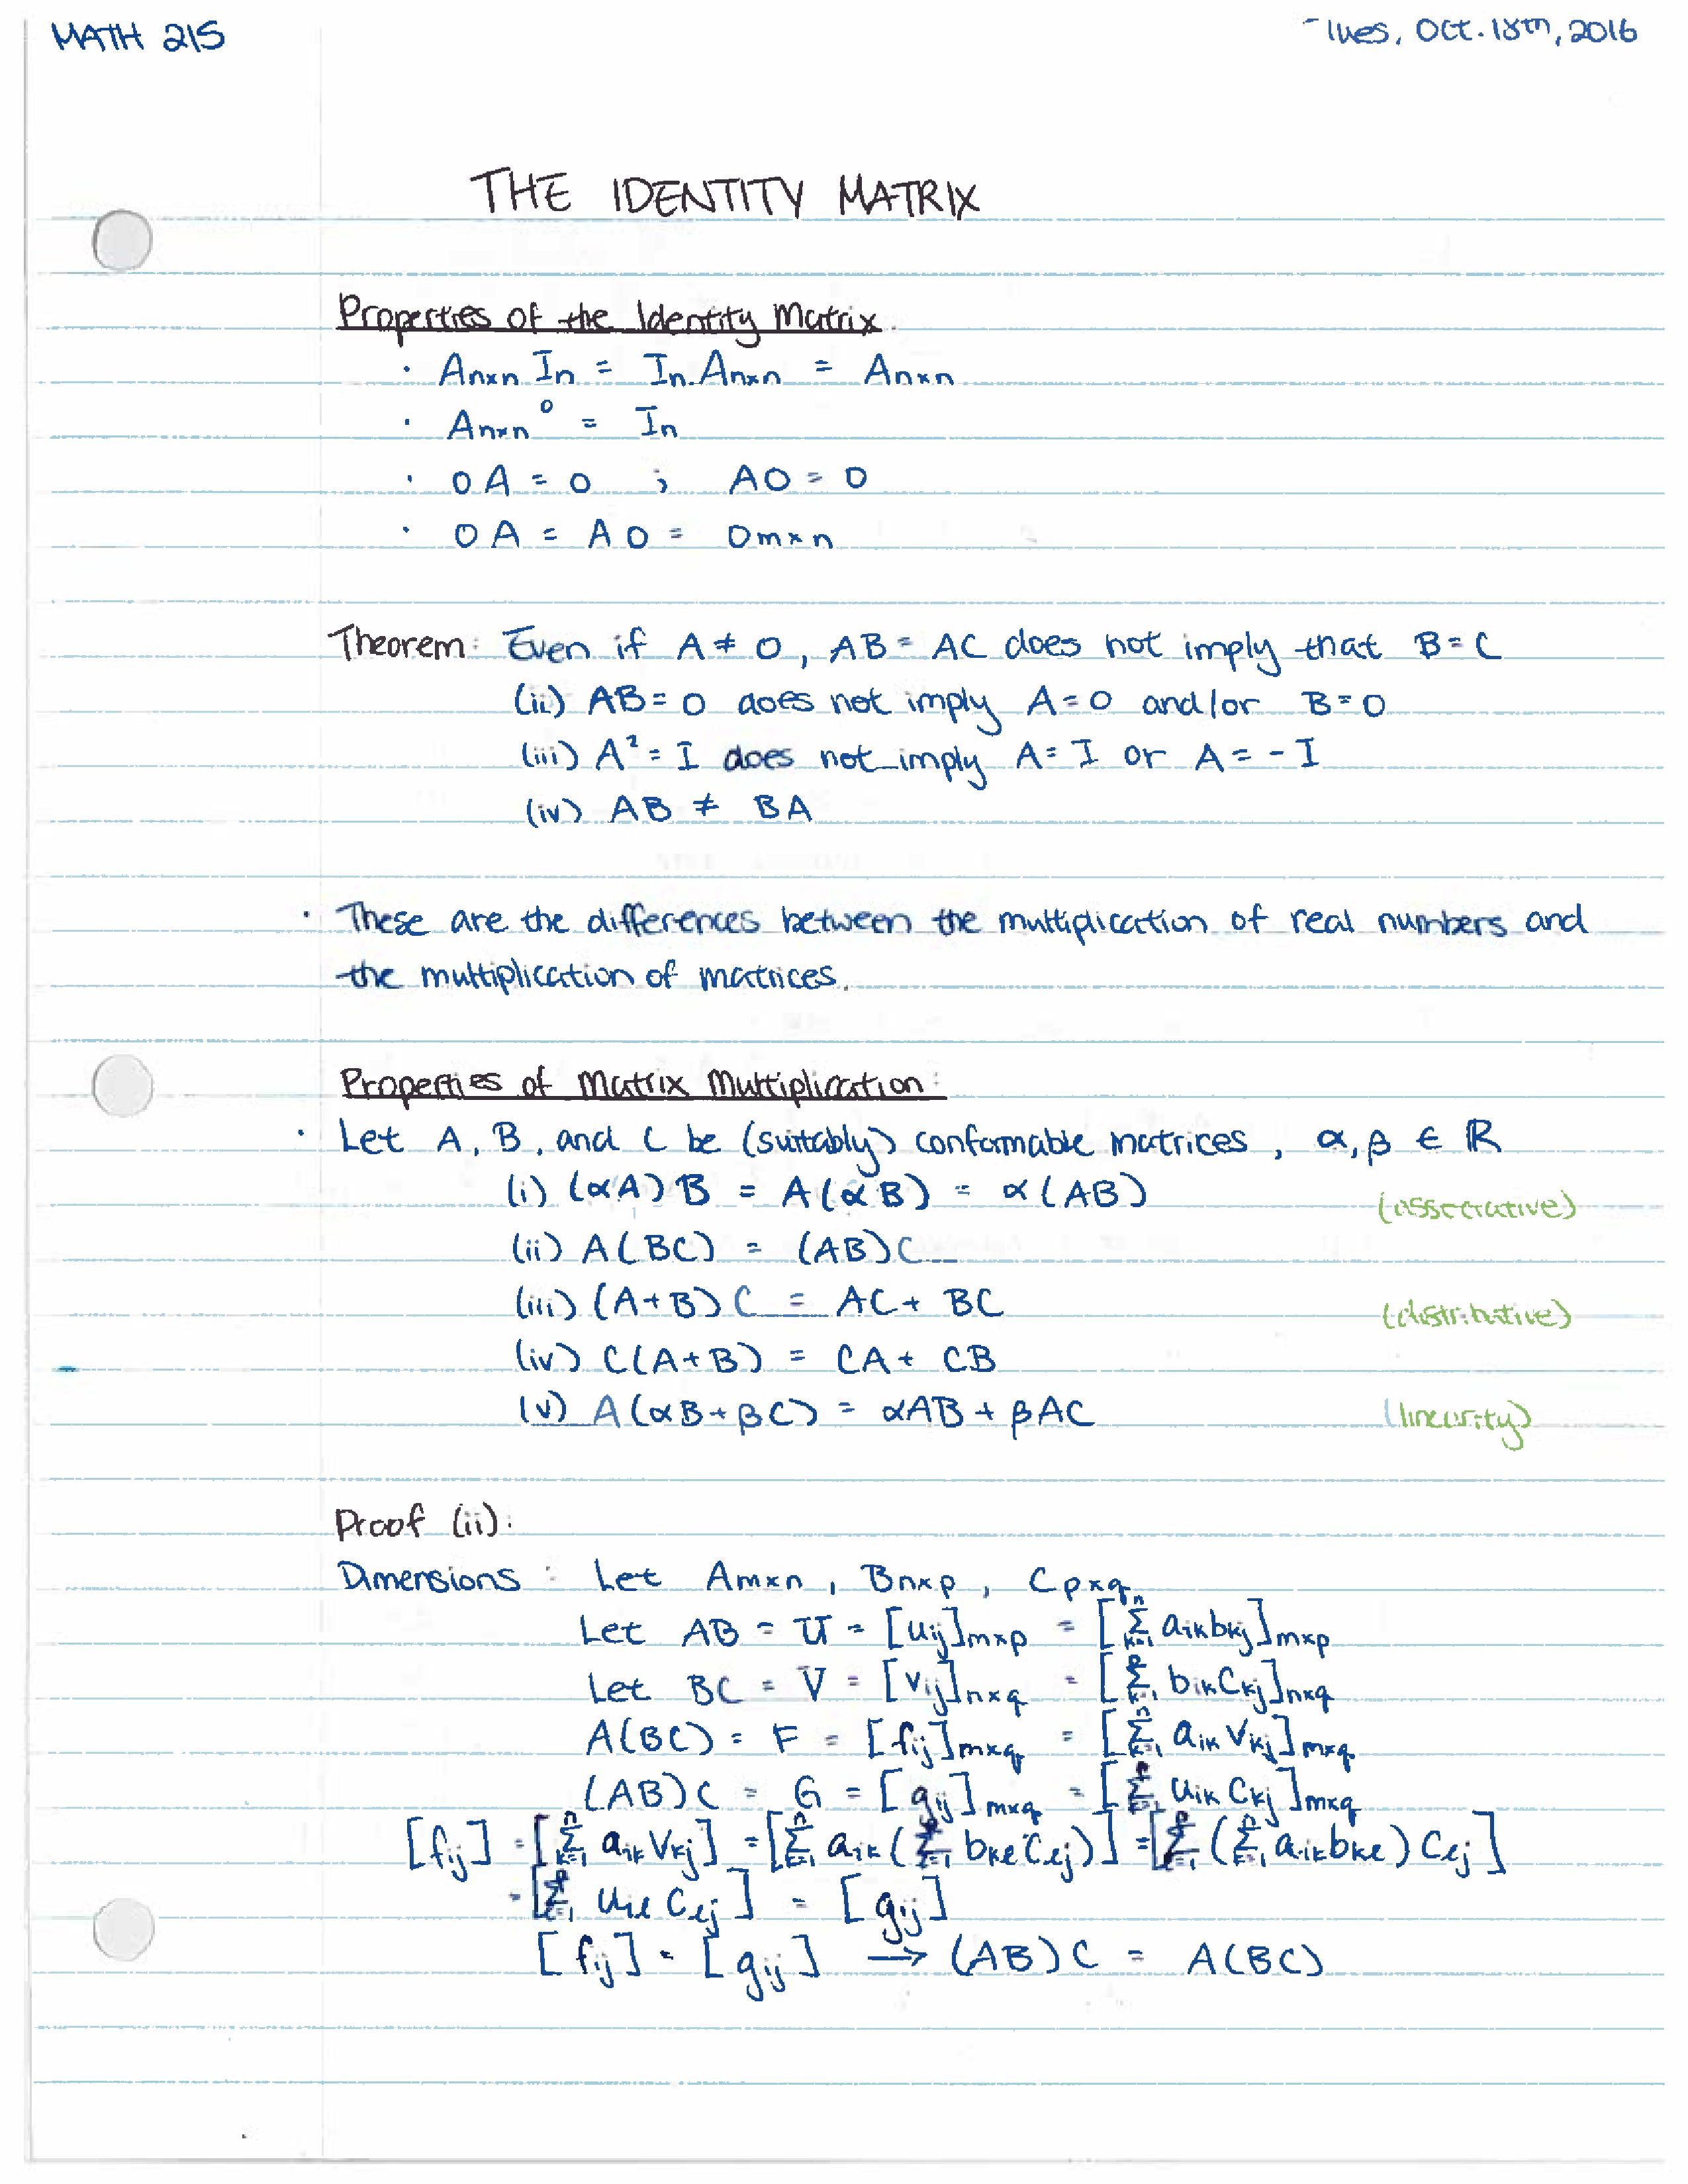 MATH 215
Tues, Oct. 18th, 2016
THE IDENTITY MATRIX
Properties of the Identity Matrix
· Anxn In = In Anxn = Anxn
· Anxn⁰ = In
· 0A = 0 ; A0 = 0
· 0A = A0 = 0mxn
Theorem: Even if A ≠ 0, AB = AC does not imply that B = C
(ii) AB = 0 does not imply A = 0 and/or B = 0
(iii) A² = I does not imply A = I or A = -I
(iv) AB ≠ BA
· These are the differences between the multiplication of real numbers and
the multiplication of matrices.
Properties of Matrix Multiplication:
· Let A, B, and C be (suitably) conformable matrices, α, β ∈ ℝ
(i) (αA)B = A(αB) = α(AB) (associative)
(ii) A(BC) = (AB)C
(iii) (A+B)C = AC + BC (distributive)
(iv) C(A+B) = CA + CB
(v) A(αB+βC) = αAB + βAC (linearity)
Proof (ii):
Dimensions: Let Amxn, Bnxp, Cpxq
Let AB = U = [uij]mxp = [Σⁿk=1 aik bkj]mxp
Let BC = V = [vij]nxq = [Σᵖk=1 bik Ckj]nxq
A(BC) = F = [fij]mxq = [Σⁿk=1 aik Vkj]mxq
(AB)C = G = [gij]mxq = [Σᵖk=1 uik Ckj]mxq
[fij] = [Σⁿk=1 aik Vkj] = [Σⁿk=1 aik (Σᵖℓ=1 bkℓ Cℓj)] = [Σᵖℓ=1 (Σⁿk=1 aik bkℓ) Cℓj]
= [Σᵖℓ=1 uiℓ Cℓj] = [gij]
[fij] = [gij] → (AB)C = A(BC)